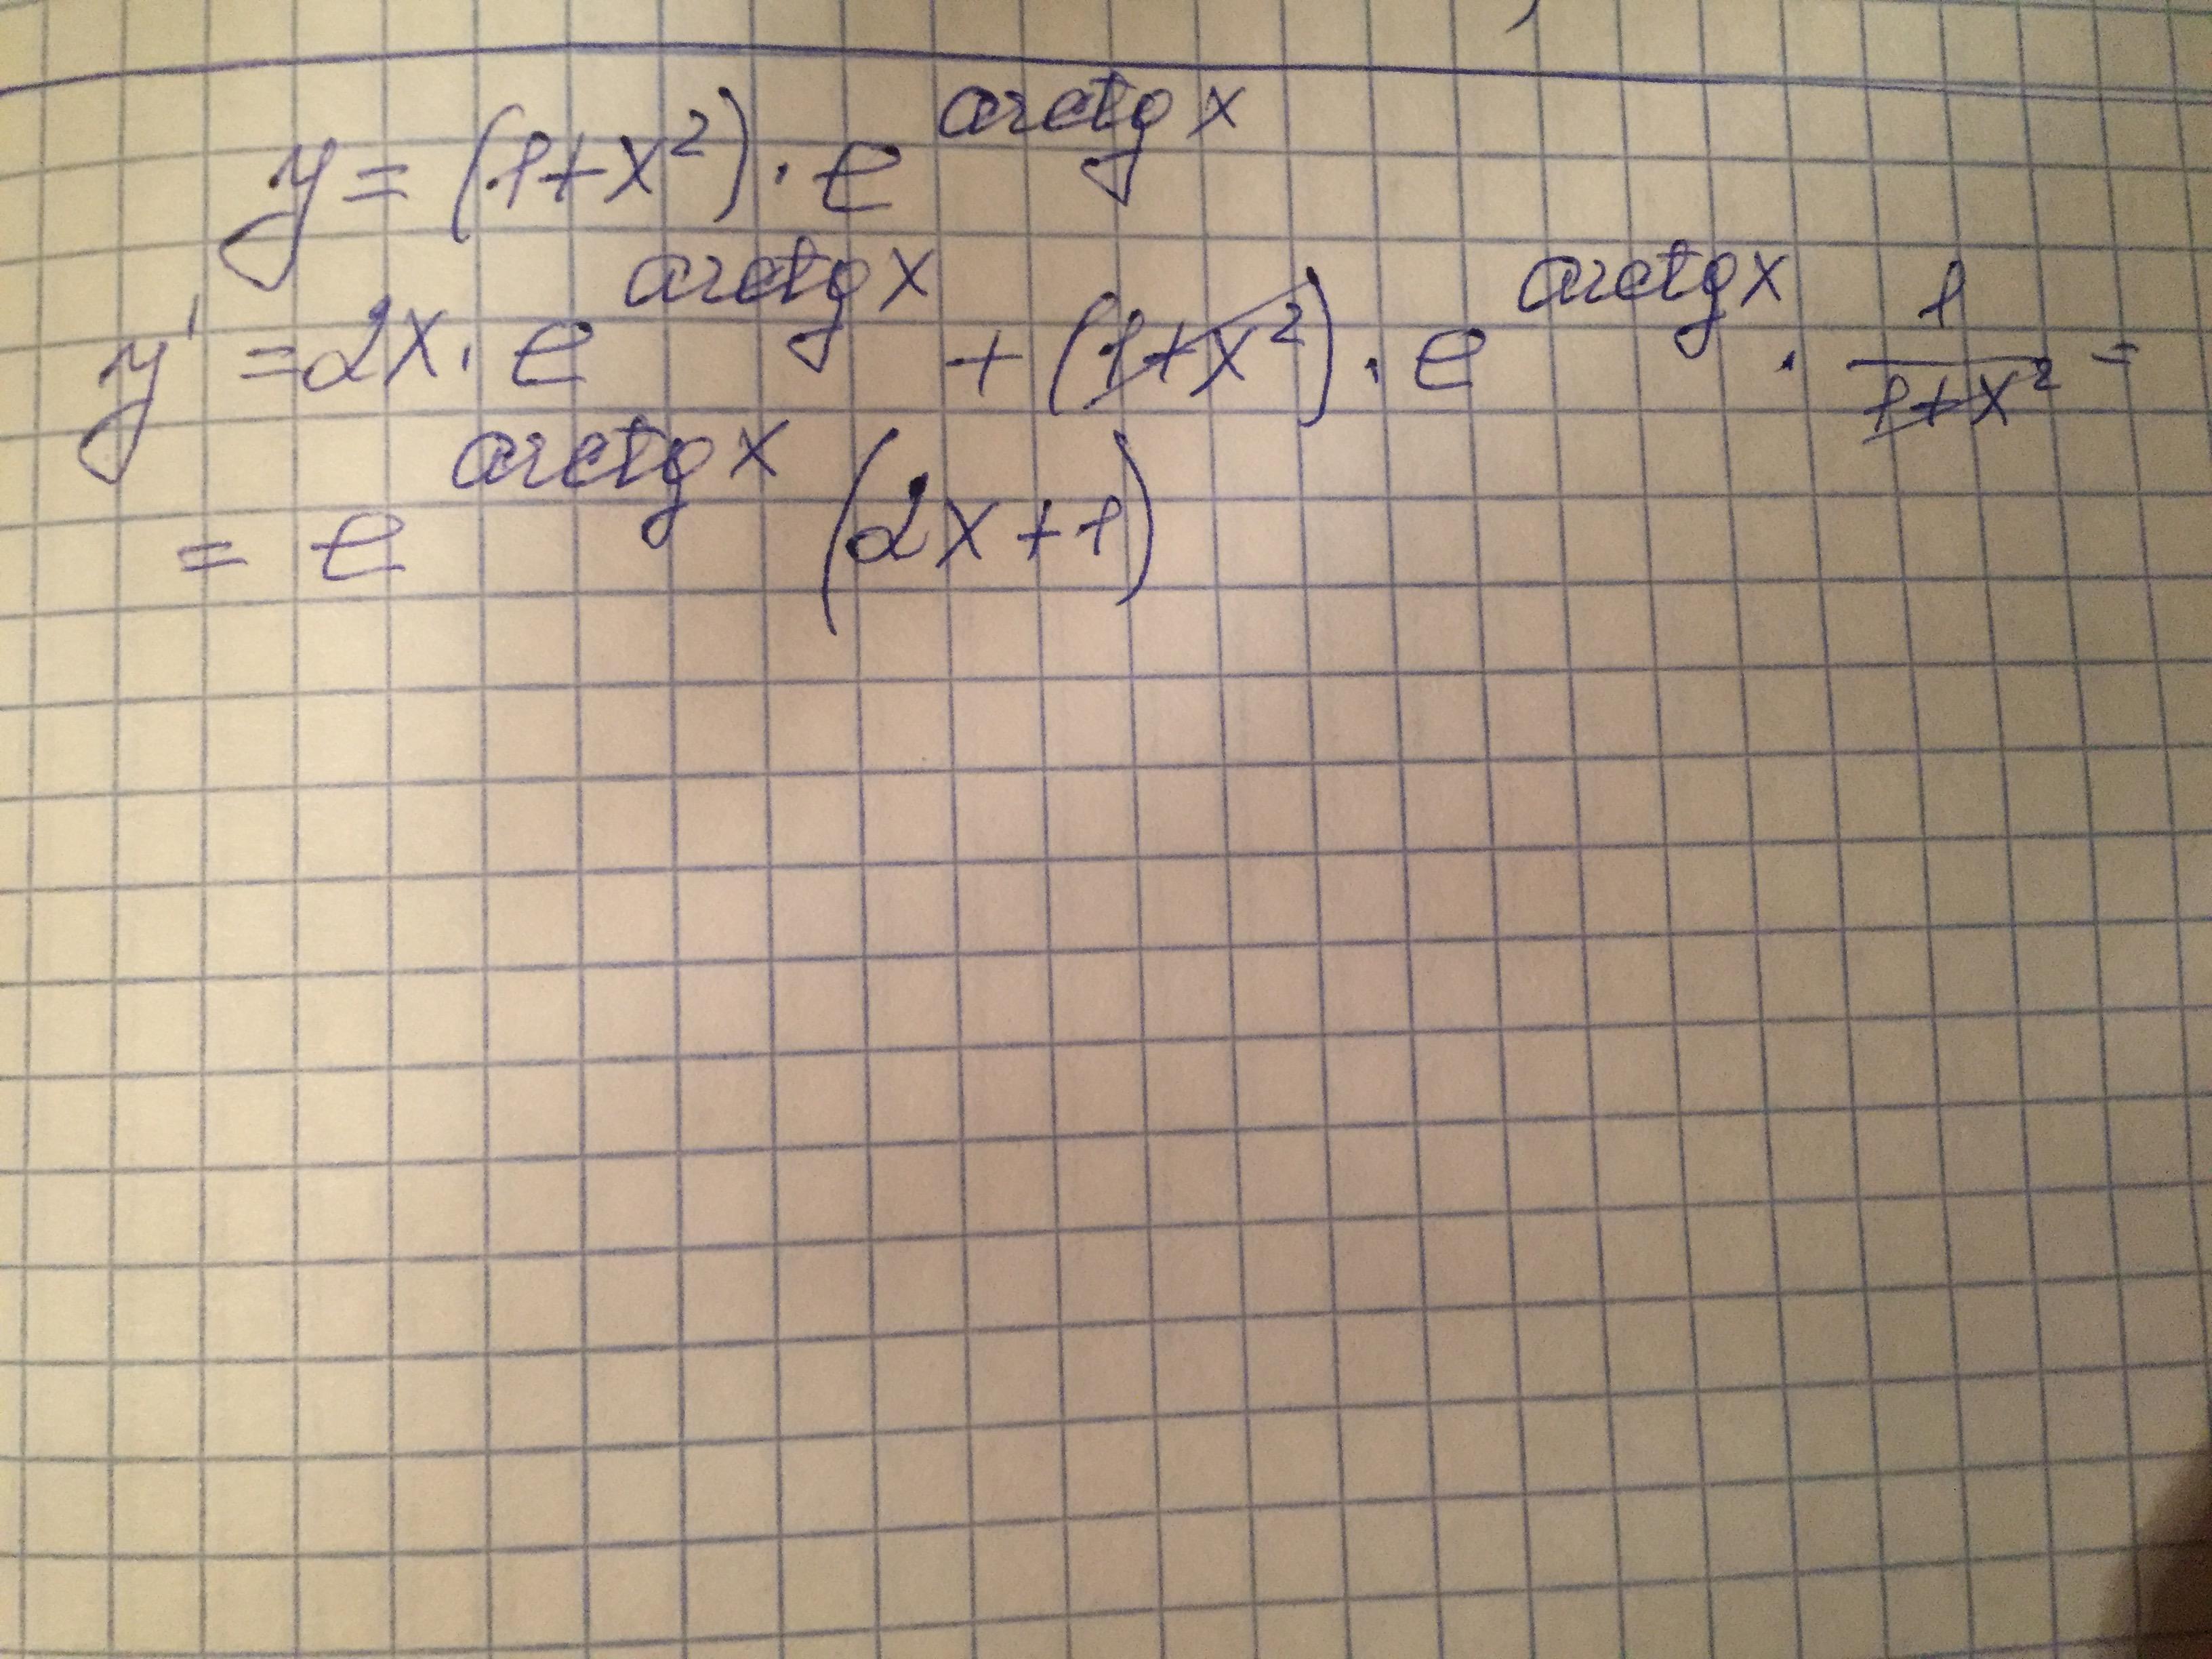 y = (1+x²) · e^{arctg x}
y' = 2x · e^{arctg x} + (1+x²) · e^{arctg x} · \frac{1}{1+x²} =
= e^{arctg x} (2x+1)